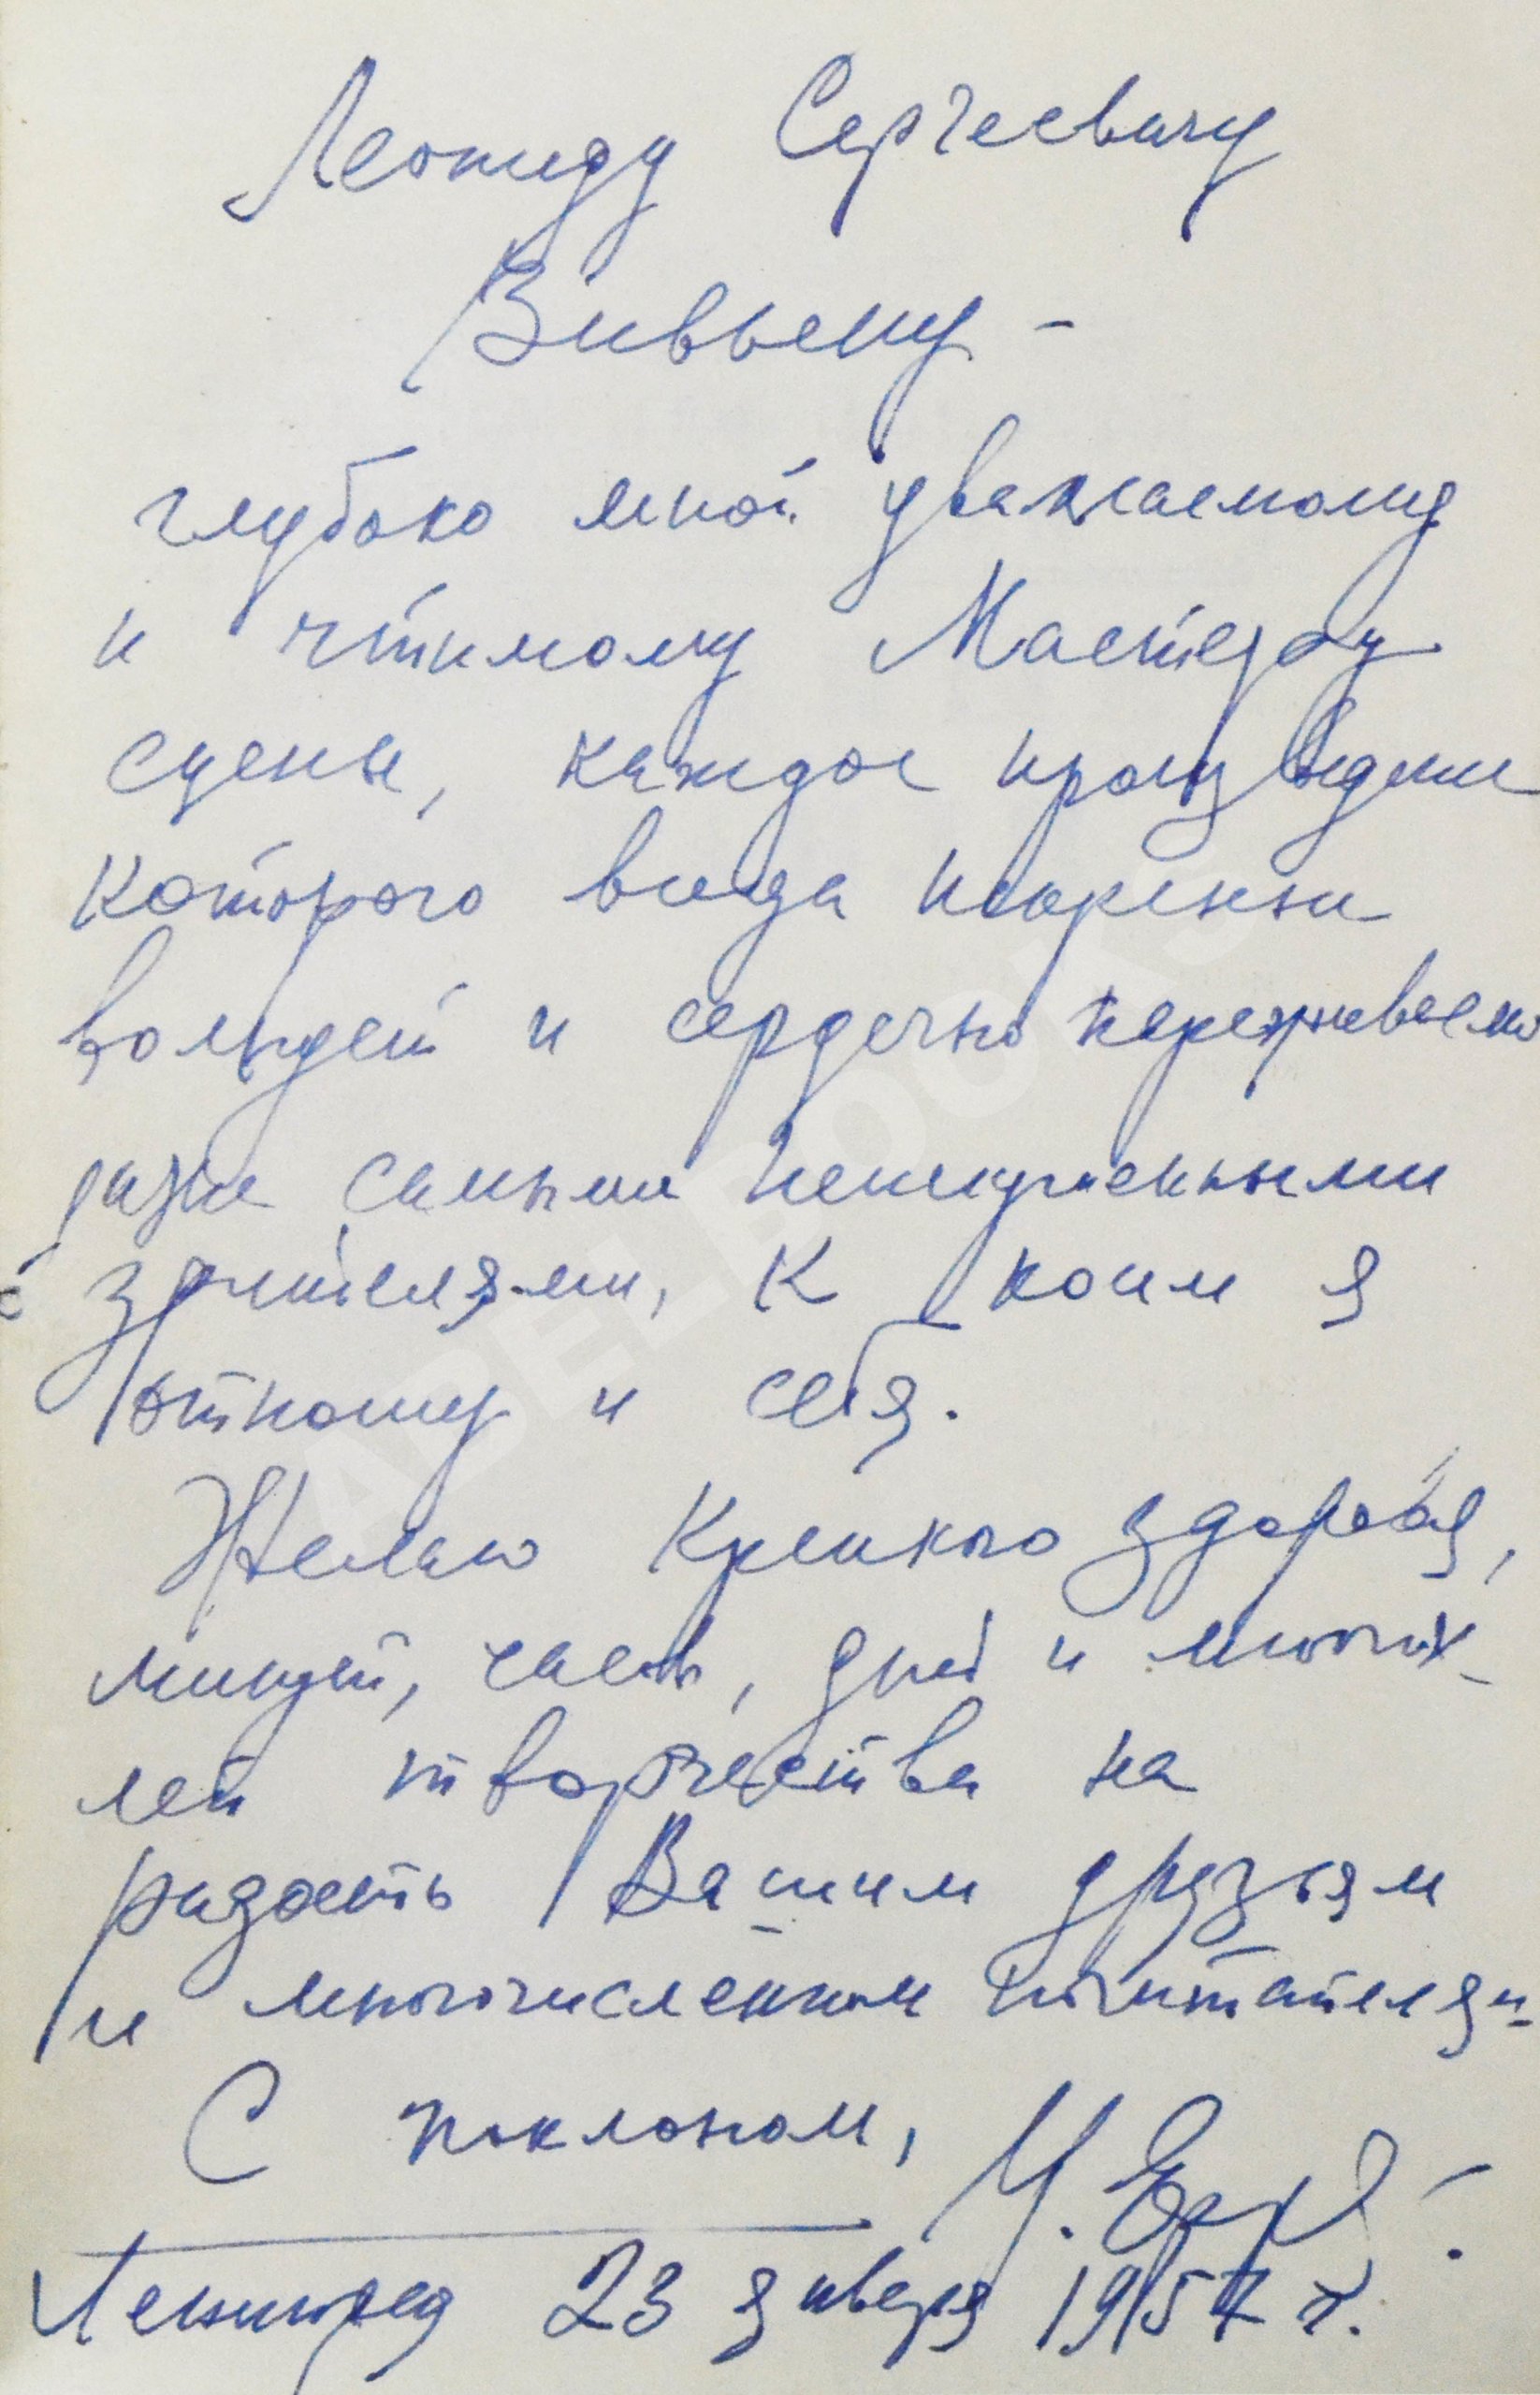 Леониду Сергеевичу
Вивьену –
глубоко мной уважаемому
и чтимому Мастеру
сцены, каждое
которого всегда искренне
волнует и сердечно переживаемо
даже самыми неискушенными
зрителями, к коим я
отношу и себя.
Желаю крепкого здоровья,
минут, часов, дней и многих
лет творчества на
радость Вашим друзьям
и многочисленным почитателям
С поклоном,
Ленинград 23 января 1957 г.
ABELBOOKS